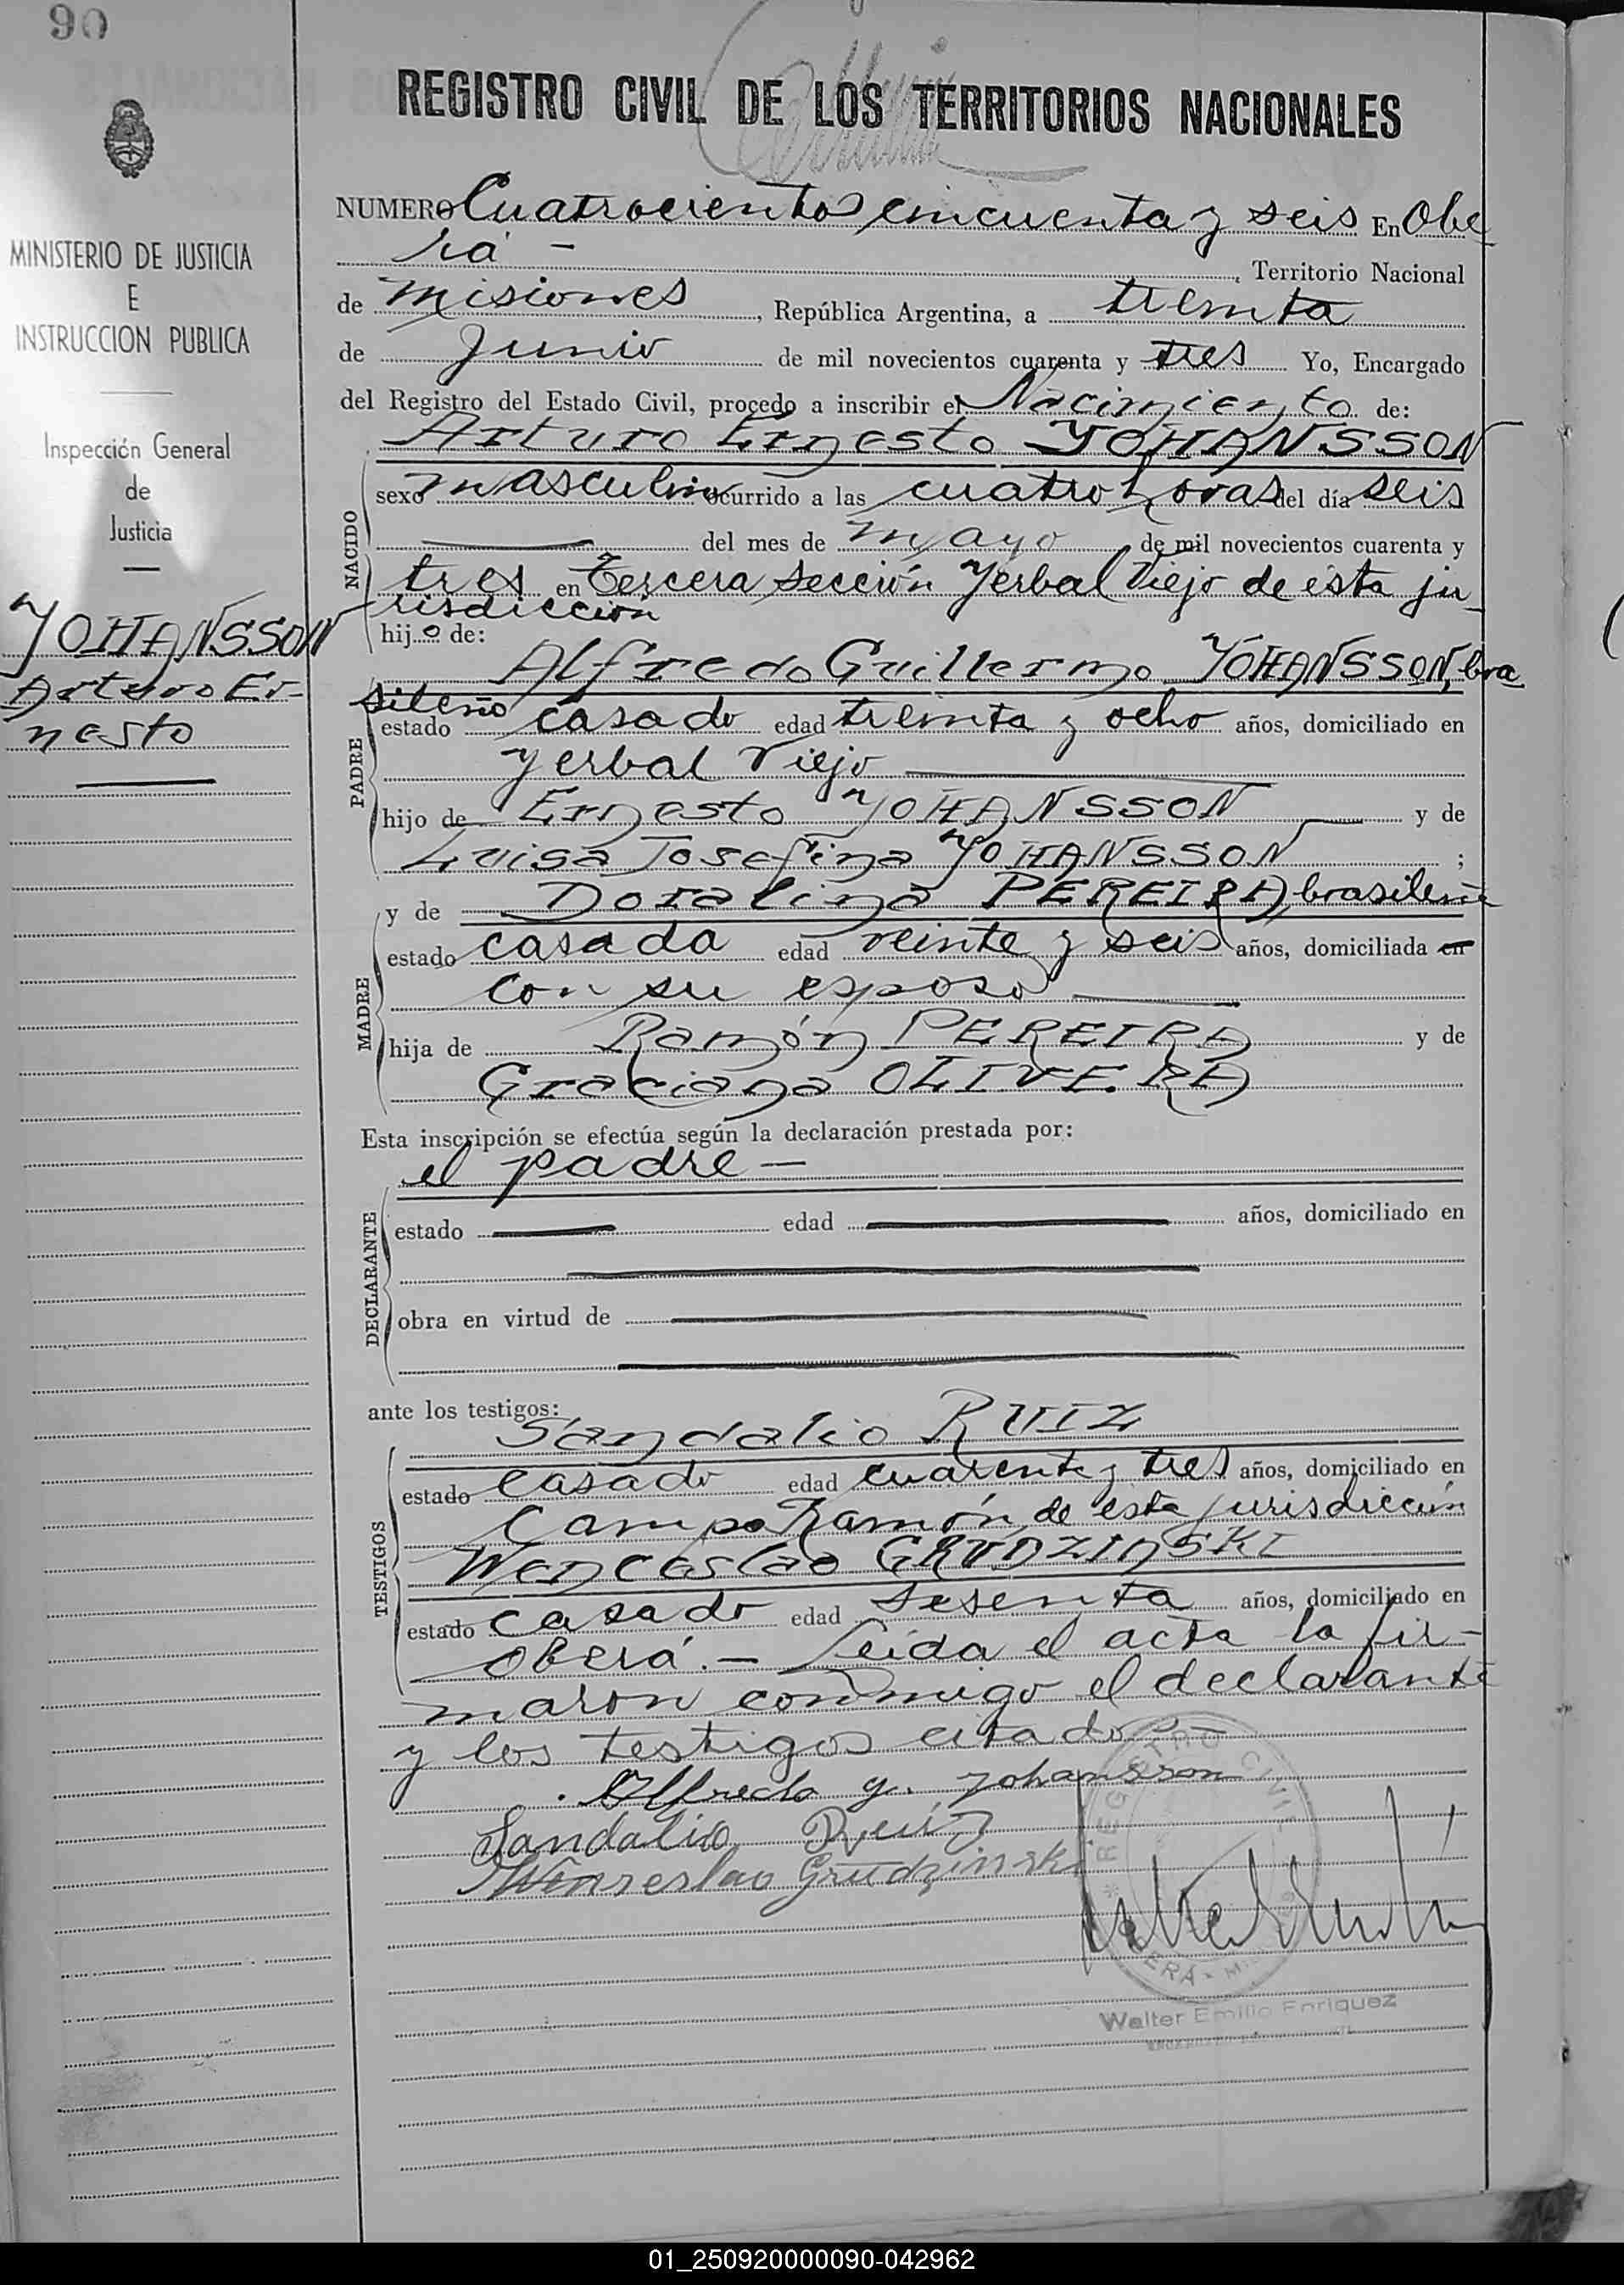 90
REGISTRO CIVIL DE LOS TERRITORIOS NACIONALES
MINISTERIO DE JUSTICIA
E
INSTRUCCION PUBLICA
Inspección General
de
Justicia
YOHANSSON
Arturo Er-
nesto
NUMERO Cuatrocientos cincuenta y seis En Obe
rá -
, Territorio Nacional
de Misiones, República Argentina, a treinta
de Junio de mil novecientos cuarenta y tres Yo, Encargado
del Registro del Estado Civil, procedo a inscribir el Nacimiento de:
Arturo Ernesto YOHANSSON
NACIDO
sexo masculino ocurrido a las cuatro horas del día seis
del mes de mayo de mil novecientos cuarenta y
tres en Tercera sección Yerbal Viejo de esta ju-
risdicción
hijo de:
Alfredo Guillermo YOHANSSON, bra
PADRE
sileño
estado casado edad treinta y ocho años, domiciliado en
Yerbal Viejo
hijo de Ernesto YOHANSSON y de
Luisa Josefina YOHANSSON ;
MADRE
y de Doralina PEREIRA, brasileña
estado casada edad veinte y seis años, domiciliada en
con su esposo
hija de Ramón PEREIRA y de
Graciana OLIVERA
Esta inscripción se efectúa según la declaración prestada por:
el padre -
DECLARANTE
estado edad años, domiciliado en
obra en virtud de
ante los testigos:
Sandalio RUIZ
TESTIGOS
estado casado edad cuarenta y tres años, domiciliado en
Campo Ramón de esta jurisdicción
Wenceslao GRUDZINSKI
estado casado edad sesenta años, domiciliado en
Oberá. - Leída el acta la fir-
maron conmigo el declarante
y los testigos citados
Alfredo g. Yohansson
Sandalio Ruiz
Wenseslao Grudzinski
REGISTRO CIVIL
Walter Emilio Enriquez
01_250920000090-042962